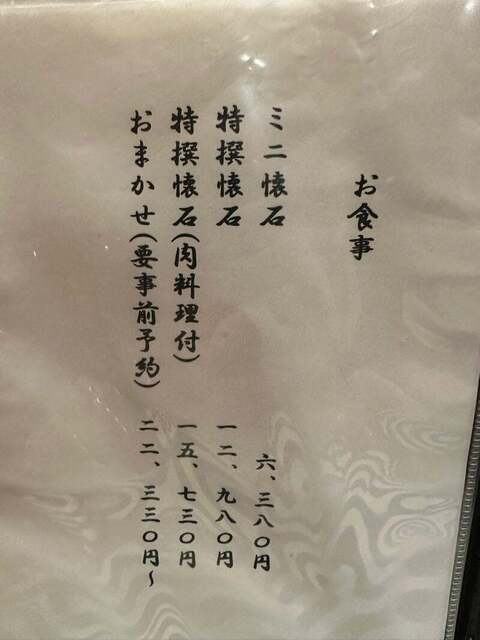 お食事
ミニ懐石 六、三八〇円
特撰懐石 一二、九八〇円
特撰懐石(肉料理付) 一五、七三〇円
おまかせ(要事前予約) 二二、三三〇円～